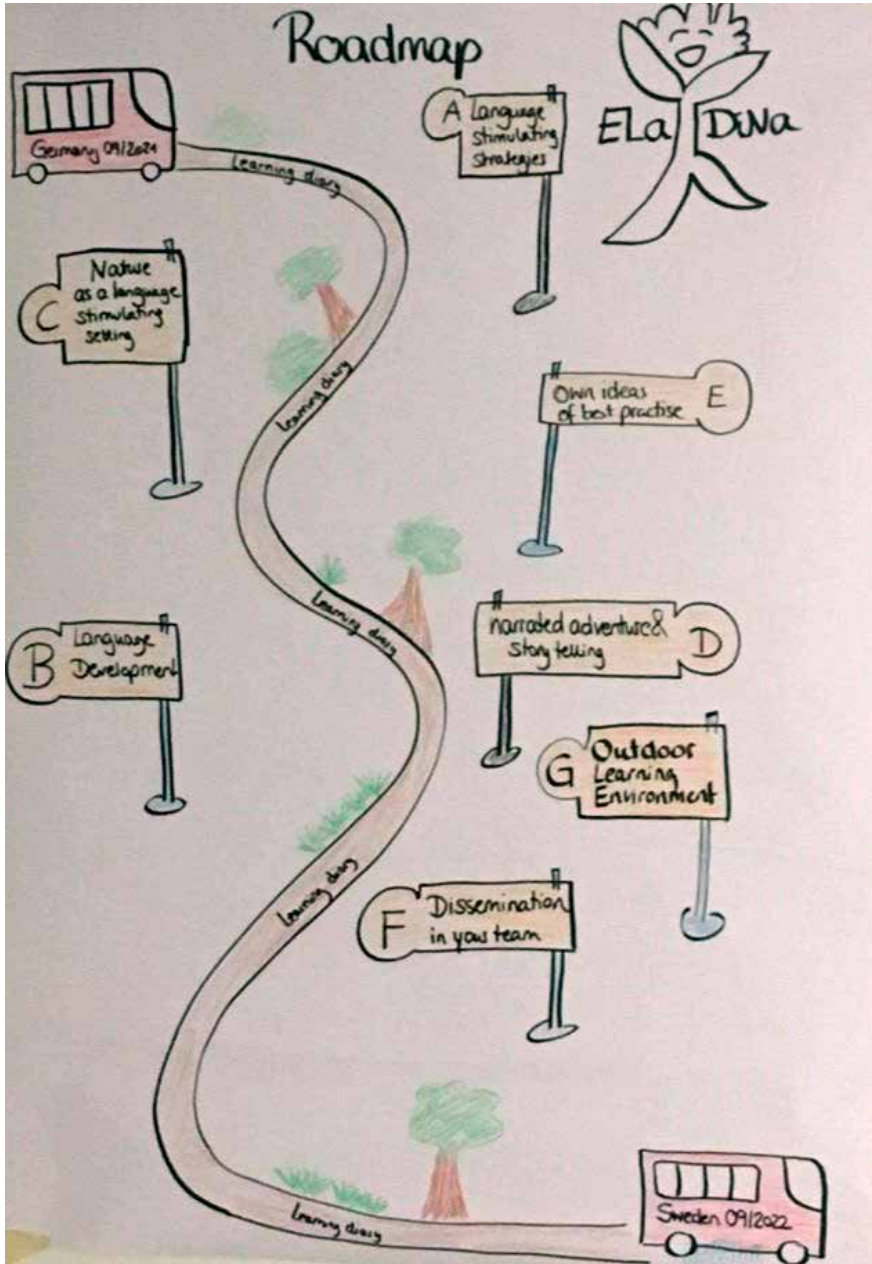 Roadmap
ELa DiNa
Germany 09/2021
Learning diary
A
Language
stimulating
strategies
C
Nature
as a language
stimulating
setting
Learning diary
Own ideas
of best practise
E
Learning diary
B
Language
Development
narrated adventure &
Story telling
D
G
Outdoor
Learning
Environment
Learning diary
F
Dissemination
in your team
Learning diary
Sweden 09/2022